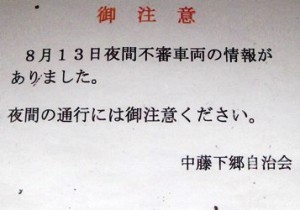 御注意
８月１３日夜間不審車両の情報が
ありました。
夜間の通行には御注意ください。
中藤下郷自治会